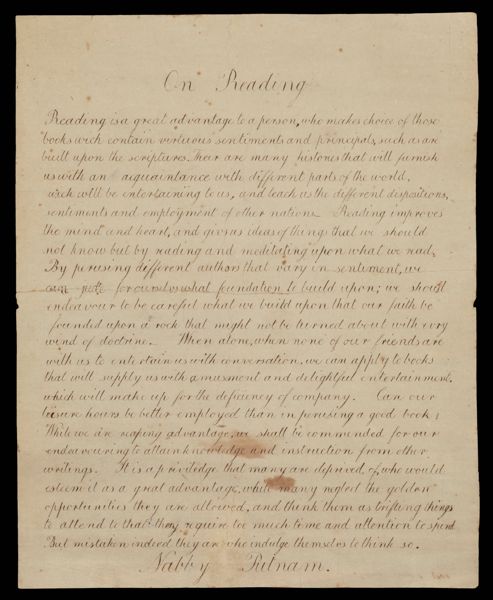 On Reading
Reading is a great advantage to a person, who makes choice of those
books wich contain virtuous sentiments and principals, such as are
built upon the scriptures. Thear are many histories that will furnish
us with an acquaintance with different parts of the world,
wich will be entertaining to us, and teach us the different dispositions,
sentiments and employment of other nations. Reading improves
the mind and heart, and gives us ideas of things that we should
not know but by reading and meditating upon what we read.
By perusing different authors that vary in sentiment, we
can for ourselves what foundation to build upon; we should
endeavour to be careful what we build upon that our faith be
founded upon a rock that might not be turned about with evry
wind of doctrine. When alone, when none of our friends are
with us to entertain us with conversation, we can apply to books
that will supply us with amusment and delightful entertainment,
which will make up for the deficiency of company. Can our
leisure hours be better employed than in perusing a good book;
While we are reaping advantage, we shall be commended for our
endeavouring to attain knowledge and instruction from other
writings. It is a priviledge that many are deprived of, who would
esteem it as a great advantage, while many neglect the golden
opportunities they are allowed, and think them as trifling things
to attend to that they require too much time and attention to spend
But mistaken indeed they are who indulge themselvs to think so.
Nabby Putnam.